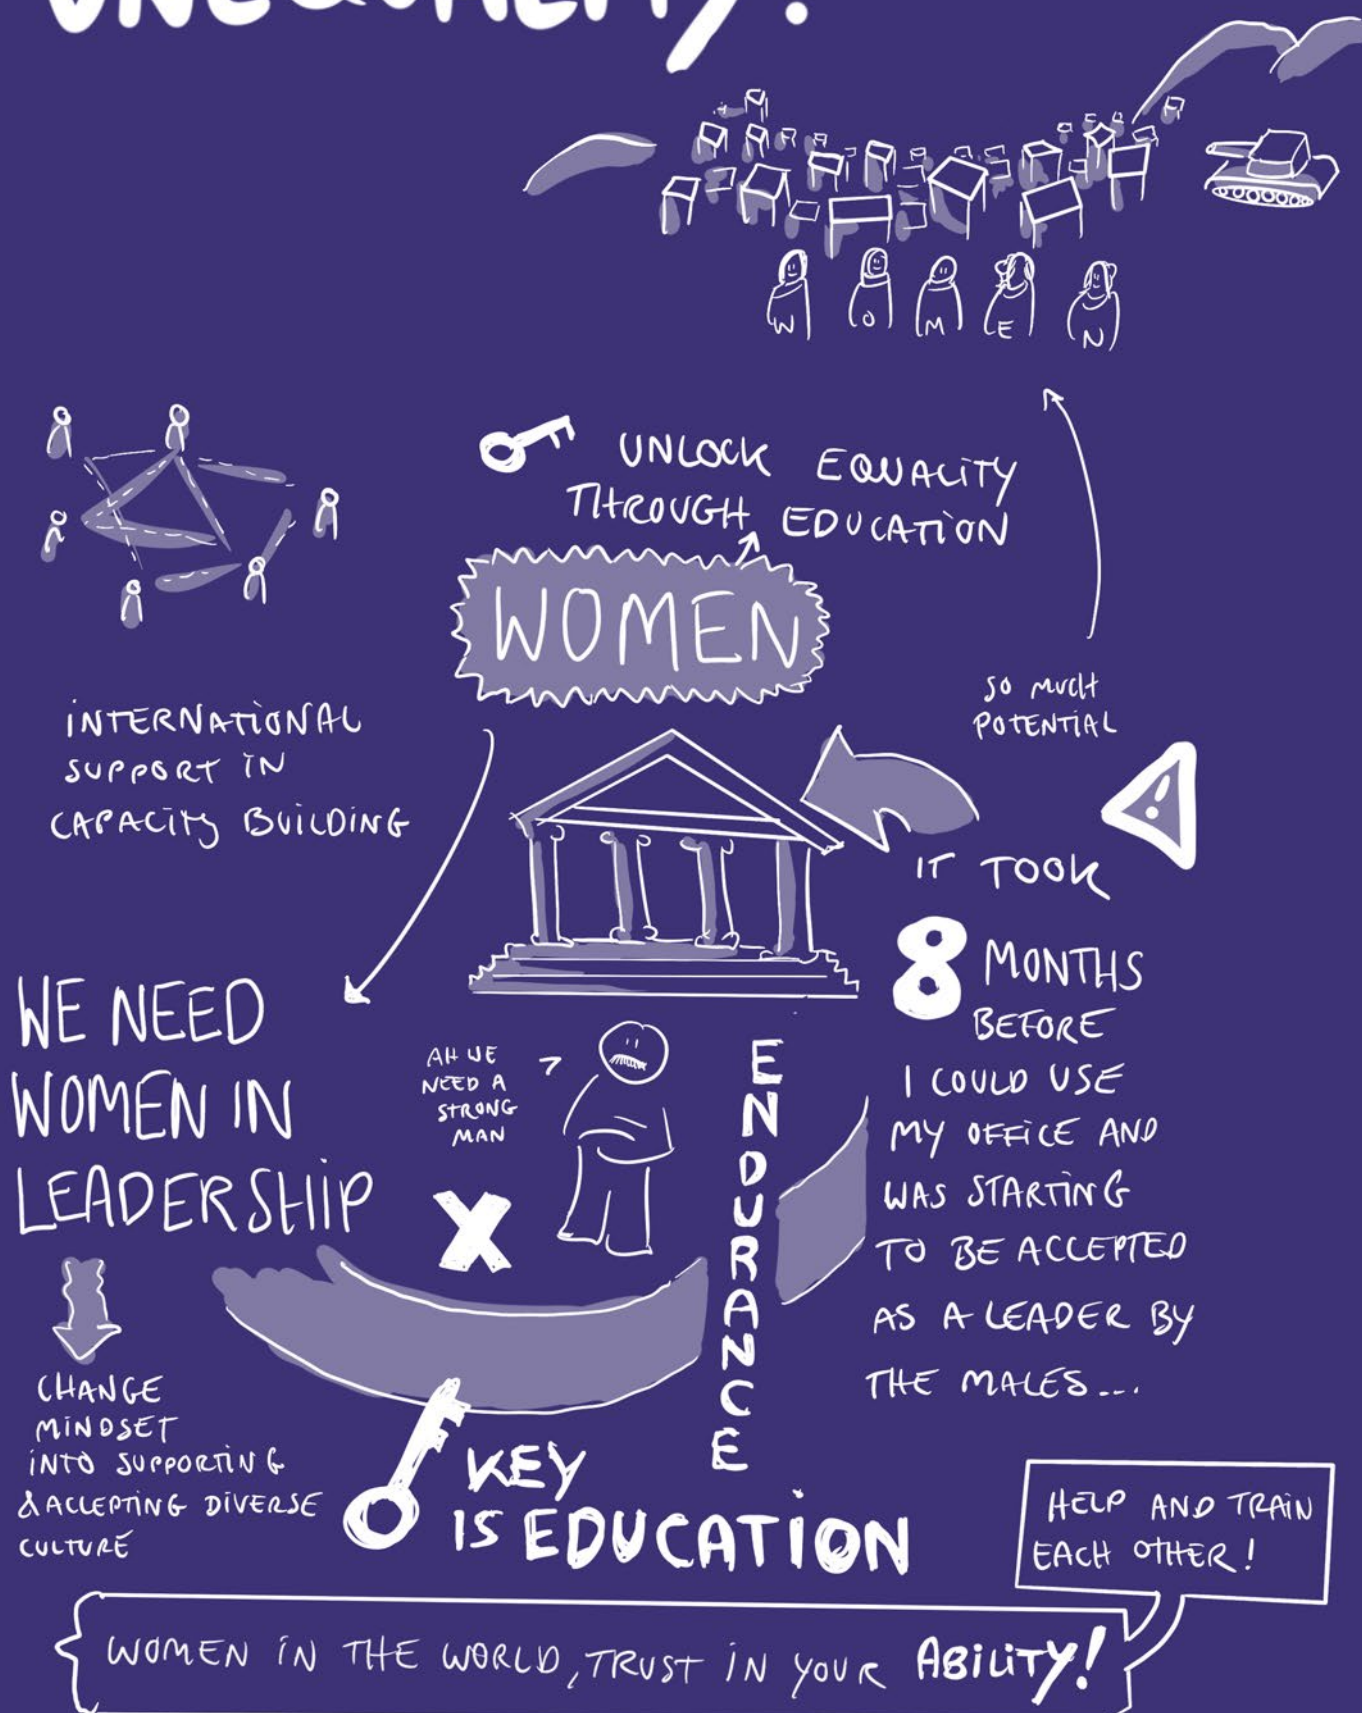 UNEQUALITY!
W O M E N
UNLOCK EQUALITY
THROUGH EDUCATION
WOMEN
SO MUCH
POTENTIAL
INTERNATIONAL
SUPPORT IN
CAPACITY BUILDING
!
IT TOOK
8 MONTHS
BEFORE
I COULD USE
MY OFFICE AND
WAS STARTING
TO BE ACCEPTED
AS A LEADER BY
THE MALES...
WE NEED
WOMEN IN
LEADERSHIP
AH WE
NEED A
STRONG
MAN
X
ENDURANCE
CHANGE
MINDSET
INTO SUPPORTING
& ACCEPTING DIVERSE
CULTURE
KEY
IS EDUCATION
HELP AND TRAIN
EACH OTHER!
WOMEN IN THE WORLD, TRUST IN YOUR ABILITY!